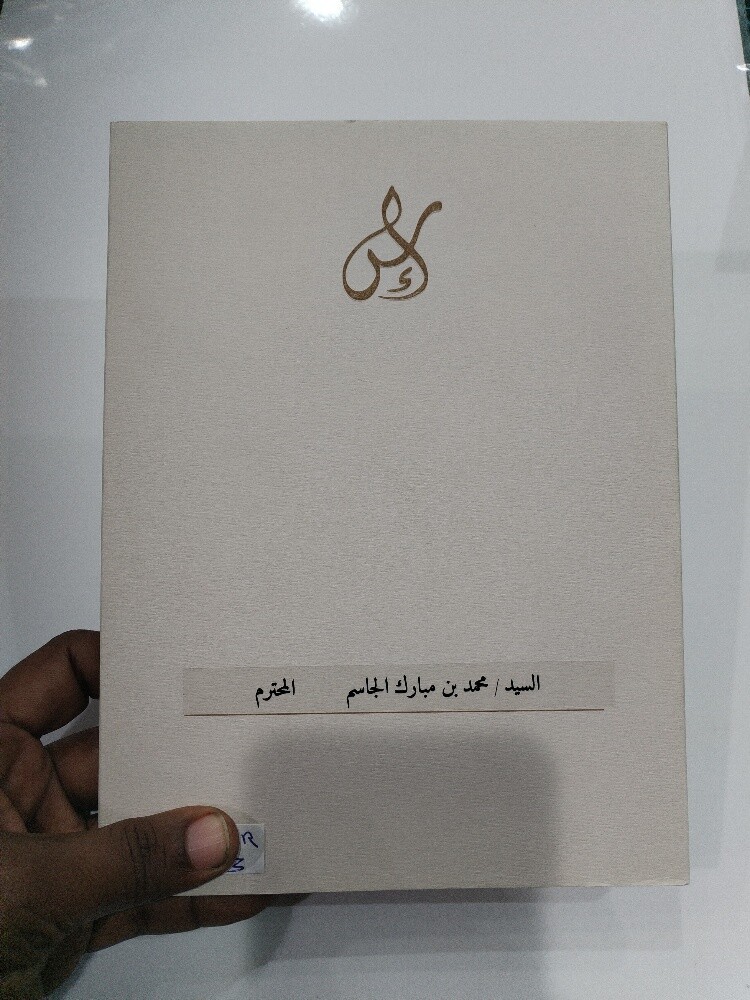 السيد / محمد بن مبارك الجاسم المحترم
R
3